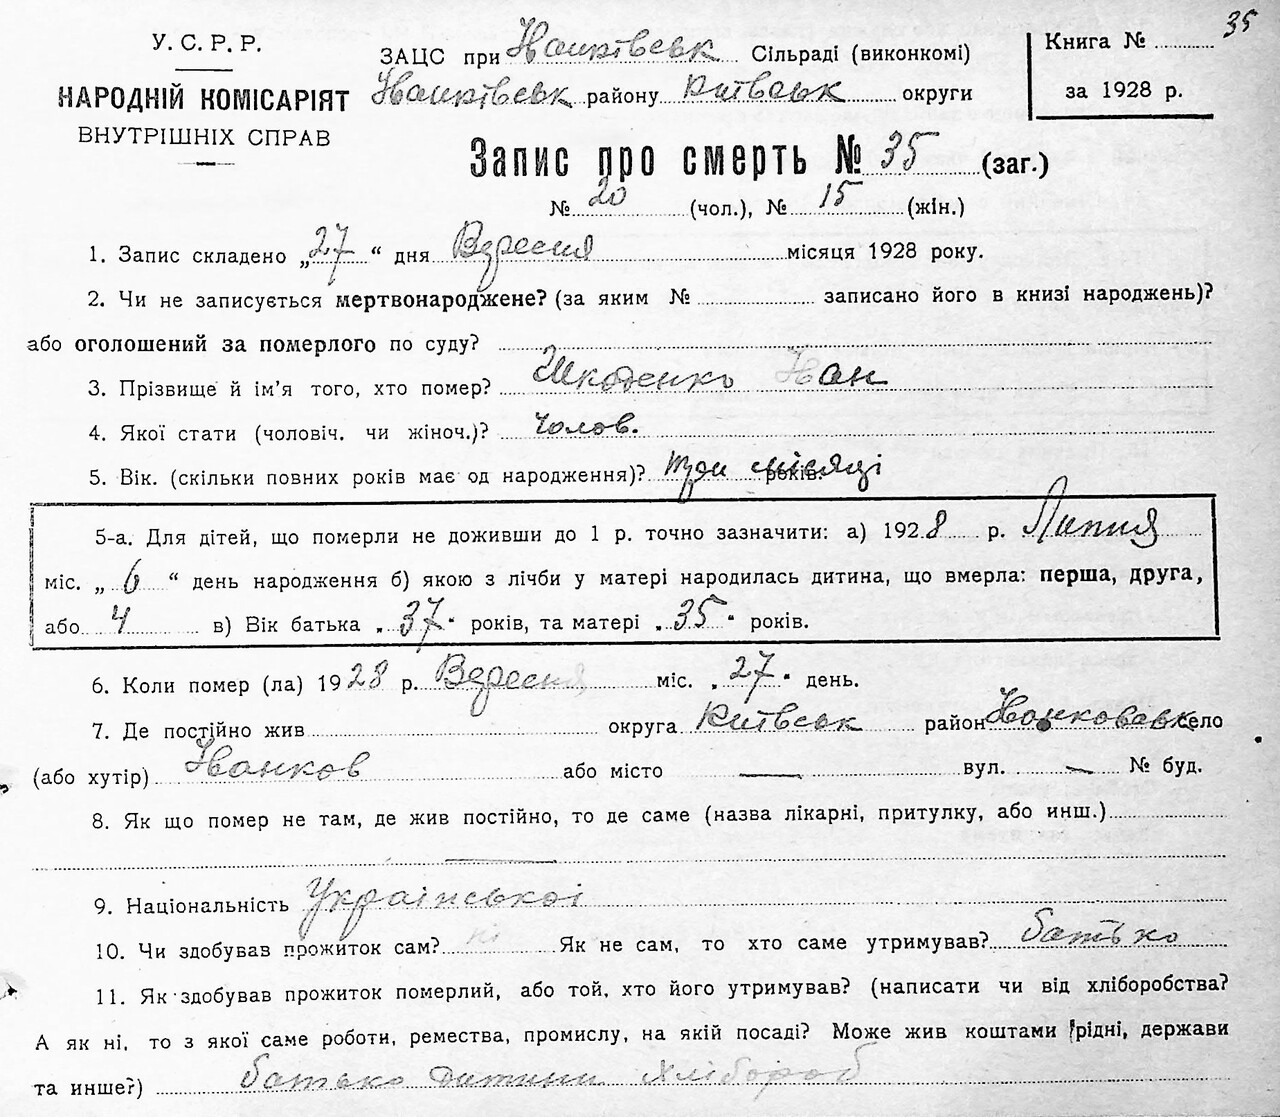 35
У. С. Р. Р.
НАРОДНІЙ КОМІСАРІЯТ
ВНУТРІШНІХ СПРАВ
ЗАЦС при Іванківськ Сільраді (виконкомі)
Іванківськ району Київськ округи
Книга №
за 1928 р.
Запис про смерть № 35 (заг.)
№ 20 (чол.), № 15 (жін.)
1. Запис складено „27“ дня Вересня місяця 1928 року.
2. Чи не записується мертвонароджене? (за яким № записано його в книзі народжень)?
або оголошений за померлого по суду?
3. Прізвище й ім'я того, хто помер? Шкоденко Іван
4. Якої стати (чоловіч. чи жіноч.)? Чолов.
5. Вік. (скільки повних років має од народження)? три місяці років.
5-а. Для дітей, що померли не доживши до 1 р. точно зазначити: а) 1928 р. Липня
міс. „6“ день народження б) якою з лічби у матері народилась дитина, що вмерла: перша, друга,
або 4 в) Вік батька „37“ років, та матері „35“ років.
6. Коли помер (ла) 1928 р. Вересня міс. „27“ день.
7. Де постійно жив округа Київськ район Іванковськ село
(або хутір) Іванков або місто — вул. — № буд.
8. Як що помер не там, де жив постійно, то де саме (назва лікарні, притулку, або инш.)
—
9. Національність Української
10. Чи здобував прожиток сам? ні Як не сам, то хто саме утримував? батько
11. Як здобував прожиток померлий, або той, хто його утримував? (написати чи від хліборобства?
А як ні, то з якої саме роботи, ремества, промислу, на якій посаді? Може жив коштами рідні, держави
та инше?) батько дитини хлібороб